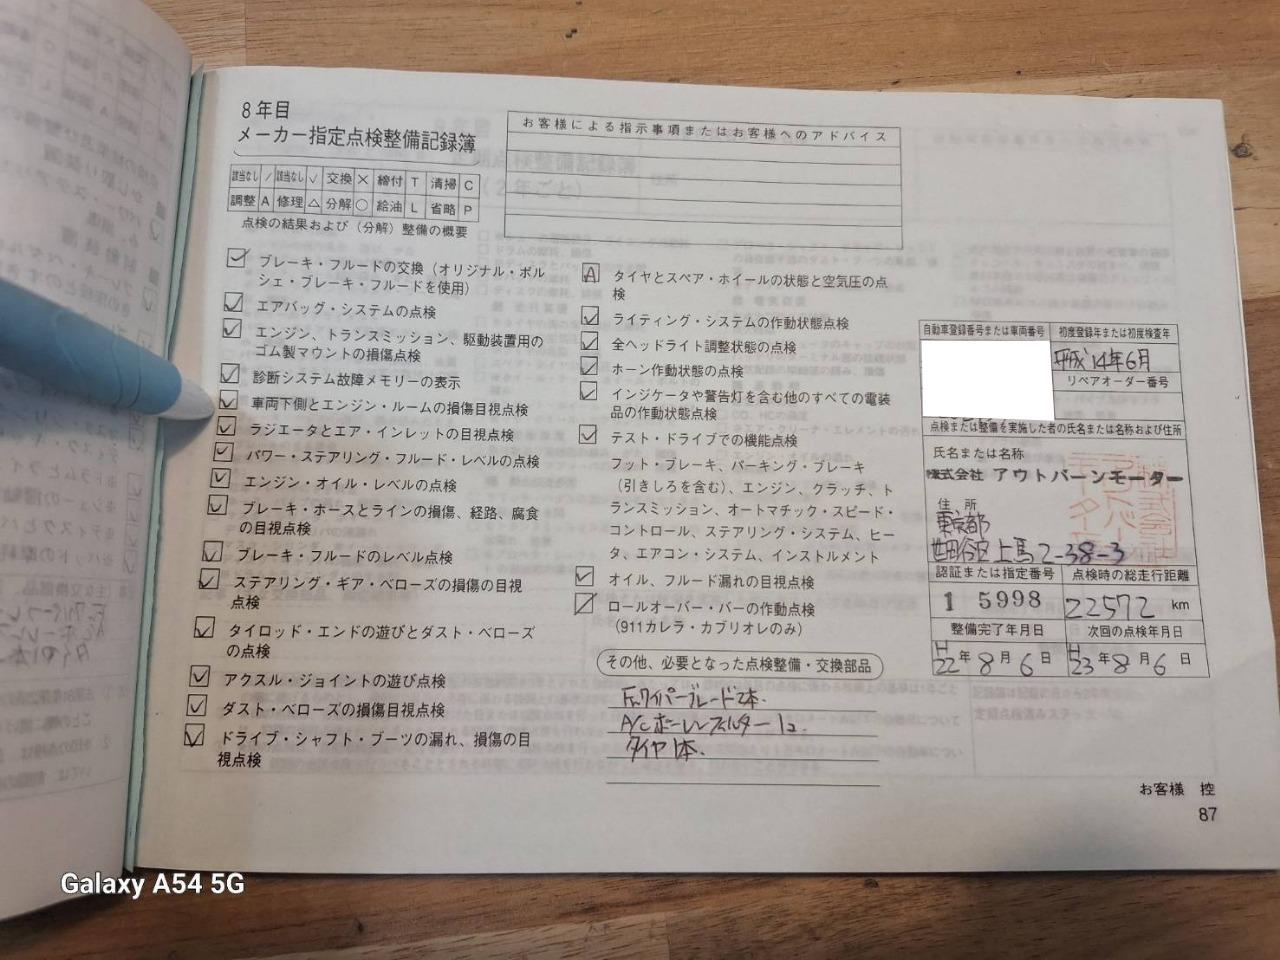 8年目
メーカー指定点検整備記録簿
該当なし / 該当なし ✓ 交換 × 締付 T 清掃 C
調整 A 修理 △ 分解 ○ 給油 L 省略 P
点検の結果および（分解）整備の概要
お客様による指示事項またはお客様へのアドバイス
✓ ブレーキ・フルードの交換（オリジナル・ポル
シェ・ブレーキ・フルードを使用）
✓ エアバッグ・システムの点検
✓ エンジン、トランスミッション、駆動装置用の
ゴム製マウントの損傷点検
✓ 診断システム故障メモリーの表示
✓ 車両下側とエンジン・ルームの損傷目視点検
✓ ラジエータとエア・インレットの目視点検
✓ パワー・ステアリング・フルード・レベルの点検
✓ エンジン・オイル・レベルの点検
✓ ブレーキ・ホースとラインの損傷、経路、腐食
の目視点検
✓ ブレーキ・フルードのレベル点検
✓ ステアリング・ギア・ベローズの損傷の目視
点検
✓ タイロッド・エンドの遊びとダスト・ベローズ
の点検
✓ アクスル・ジョイントの遊び点検
✓ ダスト・ベローズの損傷目視点検
✓ ドライブ・シャフト・ブーツの漏れ、損傷の目
視点検
A タイヤとスペア・ホイールの状態と空気圧の点
検
✓ ライティング・システムの作動状態点検
✓ 全ヘッドライト調整状態の点検
✓ ホーン作動状態の点検
✓ インジケータや警告灯を含む他のすべての電装
品の作動状態点検
✓ テスト・ドライブでの機能点検
フット・ブレーキ、パーキング・ブレーキ
（引きしろを含む）、エンジン、クラッチ、ト
ランスミッション、オートマチック・スピード・
コントロール、ステアリング・システム、ヒー
タ、エアコン・システム、インストルメント
✓ オイル、フルード漏れの目視点検
/ ロールオーバー・バーの作動点検
（911カレラ・カブリオレのみ）
その他、必要となった点検整備・交換部品
Frワイパーブレード2本.
A/Cポーレンフィルター 1コ.
タイヤ 1本.
自動車登録番号または車両番号 初度登録年または初度検査年
平成14年6月
リペアオーダー番号
点検または整備を実施した者の氏名または名称および住所
氏名または名称
株式会社 アウトバーンモーター
住 所
東京都
世田谷区上馬2-38-3
認証または指定番号 点検時の総走行距離
1 5998 22572 km
整備完了年月日 次回の点検年月日
H22年8月6日 H23年8月6日
お客様 控
87
Galaxy A54 5G